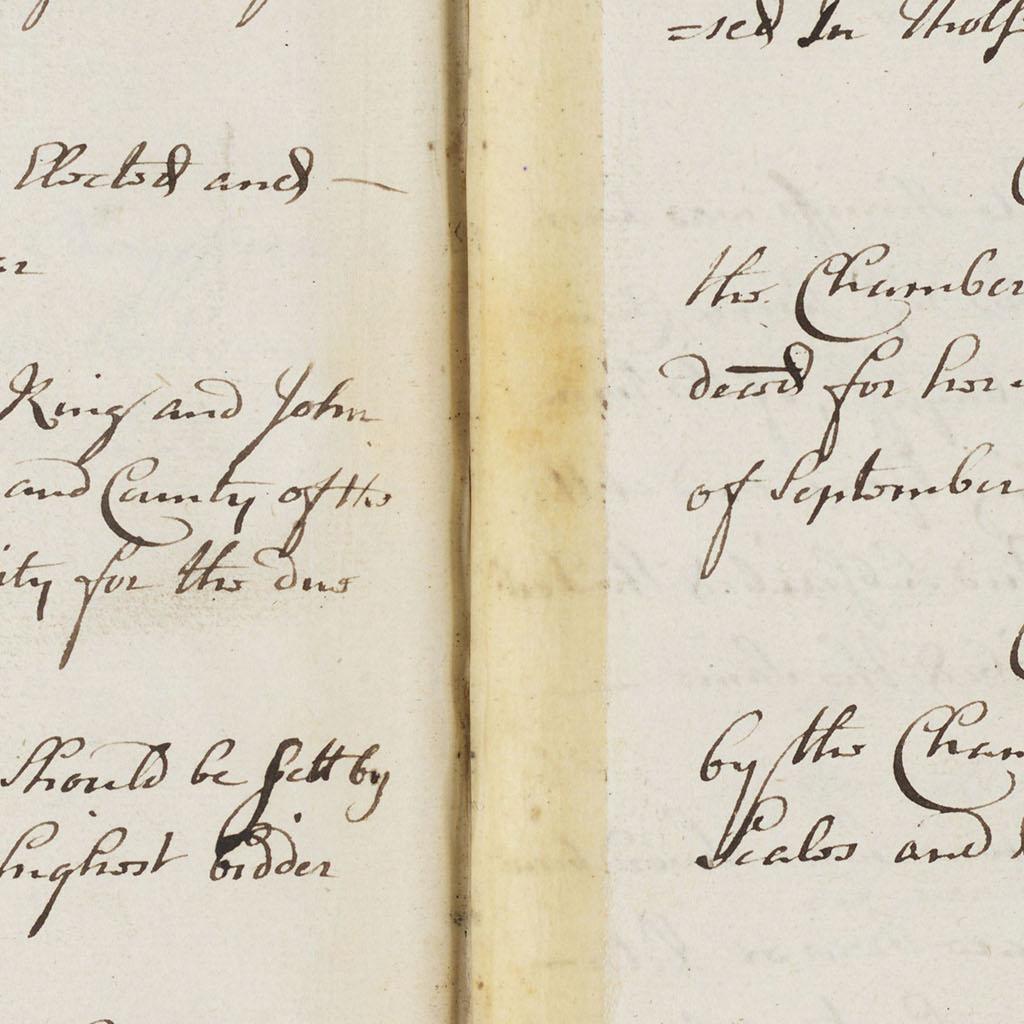 Elected and —
King and John
and County of the
ity for the due
should be sett by
highest bidder
=sed In Thols
the Chamber
decd for her
of September
by the Cham
Scales and